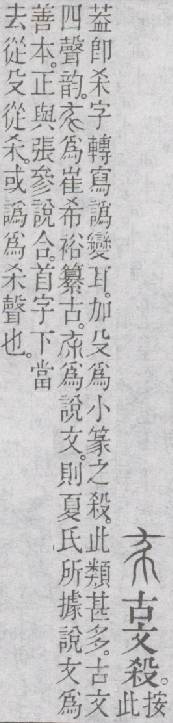 古文殺。按此
蓋即杀字轉寫譌變耳。加殳爲小篆之殺。此類甚多。古文
四聲韵。爲崔希裕纂古。爲說文。則夏氏所據說文爲
善本。正與張參說合。首字下當
去從殳從杀。或譌爲杀聲也。